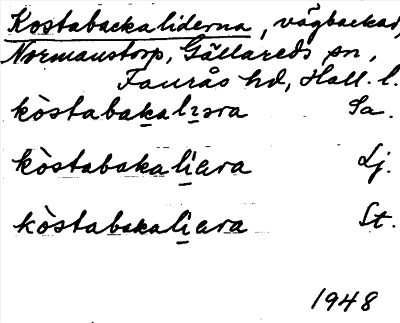 Kostabackaliderna, vägbackar,
Normanstorp, Gällareds sn,
Faurås hd, Hall. l.
kòstabaka Sa.
kòstabakaliara Lj.
kòstabakaliara St.
1948